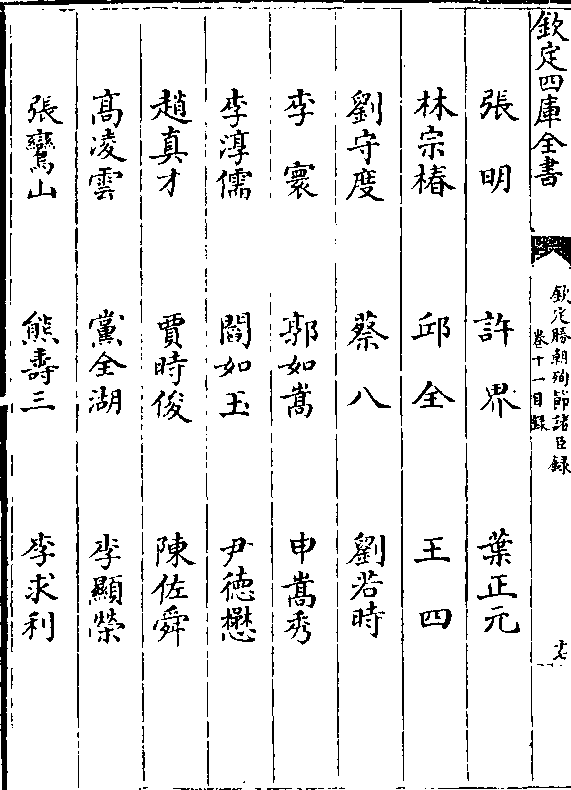 欽定四庫全書
欽定勝朝殉節諸臣録
卷十一目録
張明 許界 葉正元
林宗椿 邱全 王四
劉守度 蔡八 劉若時
李寰 郭如嵩 申嵩秀
李淳儒 閻如玉 尹德懋
趙真才 賈時俊 陳佐舜
髙凌雲 黨全湖 李顯榮
張鸞山 熊壽三 李求利